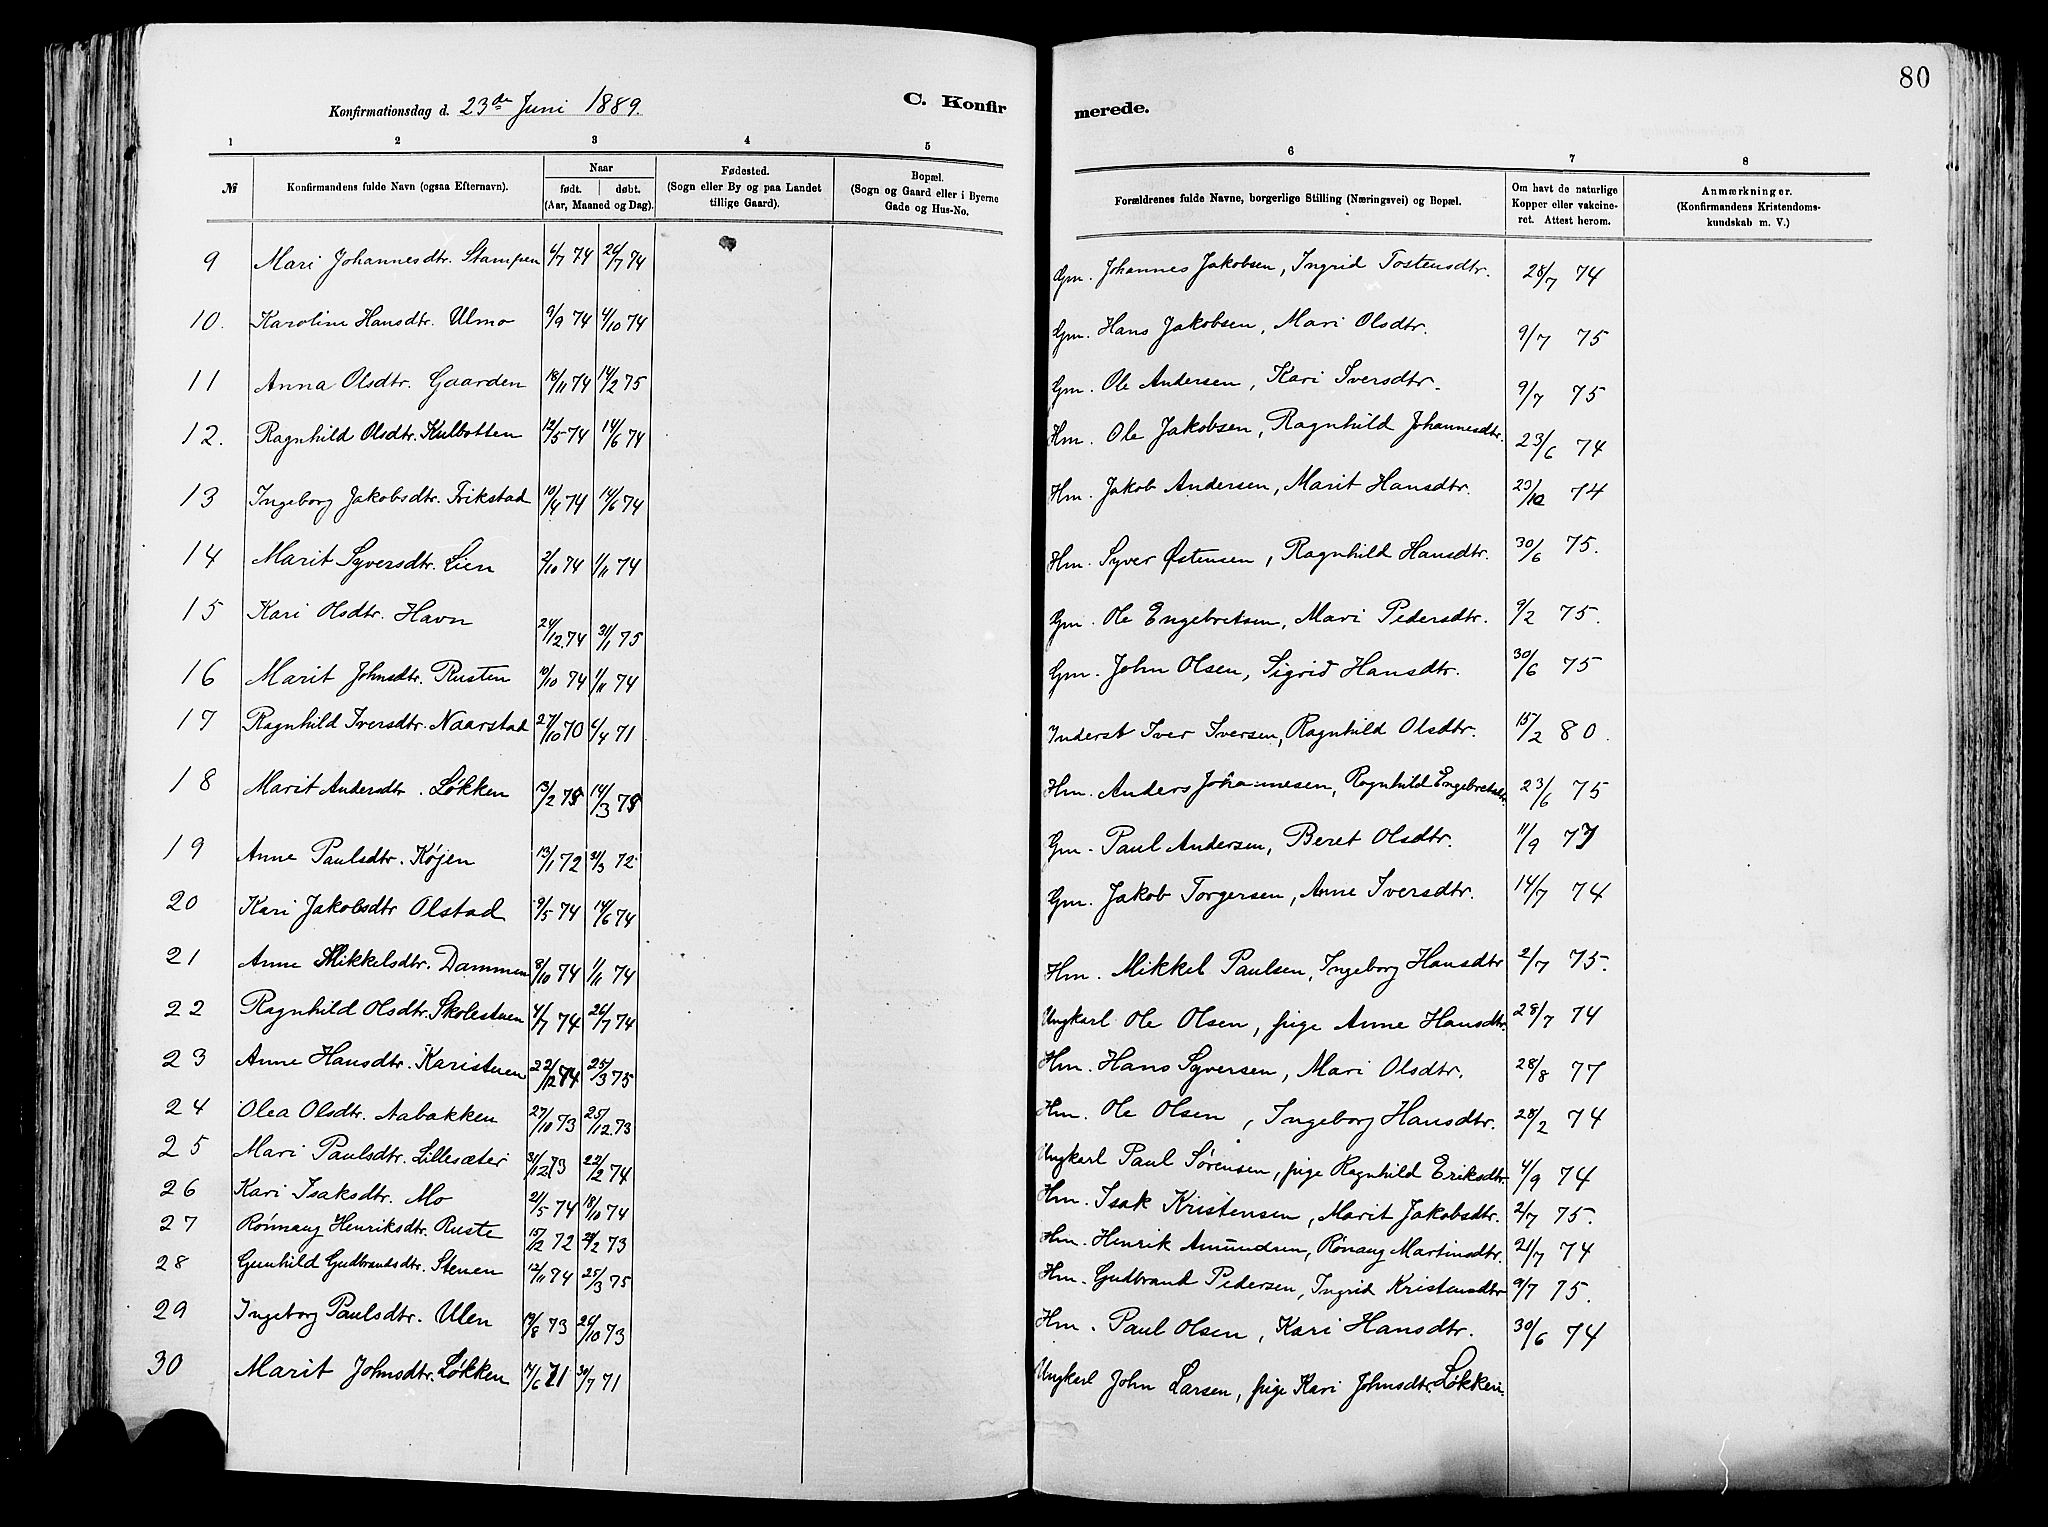 80
Konfirmationsdag d. 23de Juni 1889.
C. Konfirmerede.
1 2 3 4 5 6 7 8
№ Konfirmandens fulde Navn (ogsaa Efternavn). Naar født. døbt. (Aar, Maaned og Dag). Fødested. (Sogn eller By og paa Landet tillige Gaard). Bopæl. (Sogn og Gaard eller i Byerne Gade og Hus-No. Forældrenes fulde Navne, borgerlige Stilling (Næringsvei) og Bopæl. Om havt de naturlige Kopper eller vakcineret. Attest herom. Anmærkninger. (Konfirmandens Kristendomskundskab m. V.)
9 Mari Johannesdtr. Stampen 6/7 74 26/7 74 Gm. Johannes Jakobsen, Ingrid Tostensdtr. 28/7 74
10. Karoline Hansdtr. Ulmo 9/9 74 4/10 74 Gm. Hans Jakobsen, Mari Olsdtr. 9/7 75
11 Anna Olsdtr. Gaarden 18/11 74 14/2 75 Gm. Ole Andersen, Kari Iversdtr. 9/7 75
12. Ragnhild Olsdtr. Kulbotten 12/5 74 14/6 74 Hm. Ole Jakobsen, Ragnhild Johannesdtr. 23/6 74
13 Ingeborg Jakobsdtr. Frikstad 10/4 74 14/6 74 Hm. Jakob Andersen, Marit Hansdtr. 23/12 74
14 Marit Syversdtr. Lien 2/10 74 1/11 74 Hm. Syver Østensen, Ragnhild Hansdtr. 30/6 75.
15 Kari Olsdtr. Havn 24/12 74 31/1 75 Gm. Ole Engebretsen, Mari Pedersdtr. 9/2 75.
16 Marit Johnsdtr. Rusten 10/10 74 1/11 74 Gm. John Olsen, Sigrid Hansdtr. 30/6 75
17 Ragnhild Iversdtr. Naarstad 27/10 70 6/4 71 Inderst Iver Iversen, Ragnhild Olsdtr. 15/2 80.
18 Marit Andersdtr. Løkken 13/2 75 14/3 75 Hm. Anders Johannesen, Ragnhild Engebretsdtr. 23/6 75
19 Anne Paulsdtr. Køjen 13/1 72 31/3 72 Gm. Paul Andersen, Beret Olsdtr. 11/9 77
20 Kari Jakobsdtr Olstad 9/5 74 14/6 74 Gm. Jakob Torgersen, Anne Iversdtr. 14/7 74
21 Anne Mikkelsdtr. Dammen 8/10 74 1/11 74 Hm. Mikkel Paulsen, Ingeborg Hansdtr 2/7 75.
22 Ragnhild Olsdtr. Skolestuen 4/7 74 26/7 74 Ungkarl Ole Olsen, pige Anne Hansdtr. 28/7 74
23 Anne Hansdtr. Karistuen 22/12 74 25/3 75 Hm. Hans Syversen, Mari Olsdtr. 28/8 77
24 Olea Olsdtr. Aabakken 27/10 73 25/12 73 Hm. Ole Olsen, Ingeborg Hansdtr. 28/2 74
25 Mari Paulsdtr. Lillesæter 31/12 73 22/2 74 Ungkarl Paul Sørensen, pige Ragnhild Eriksdtr. 4/9 74
26 Kari Isaksdtr. Mo 21/5 74 18/10 74 Hm. Isak Kristensen, Marit Jakobsdtr. 2/7 75.
27 Rønnaug Henriksdtr. Ruste 15/12 72 2/2 73 Hm. Henrik Amundsen, Rønaug Martinsdtr. 21/7 74
28 Gunhild Gudbrandsdtr. Stenen 12/11 74 25/3 75 Hm. Gudbrand Pedersen, Ingrid Kristensdtr 9/7 75.
29 Ingeborg Paulsdtr. Ulen 19/8 73 26/10 73 Hm. Paul Olsen, Kari Hansdtr. 30/6 74
30 Marit Johnsdtr. Løkken 7/6 71 30/7 71 Ungkarl John Larsen, pige Kari Johnsdtr. Løkken.